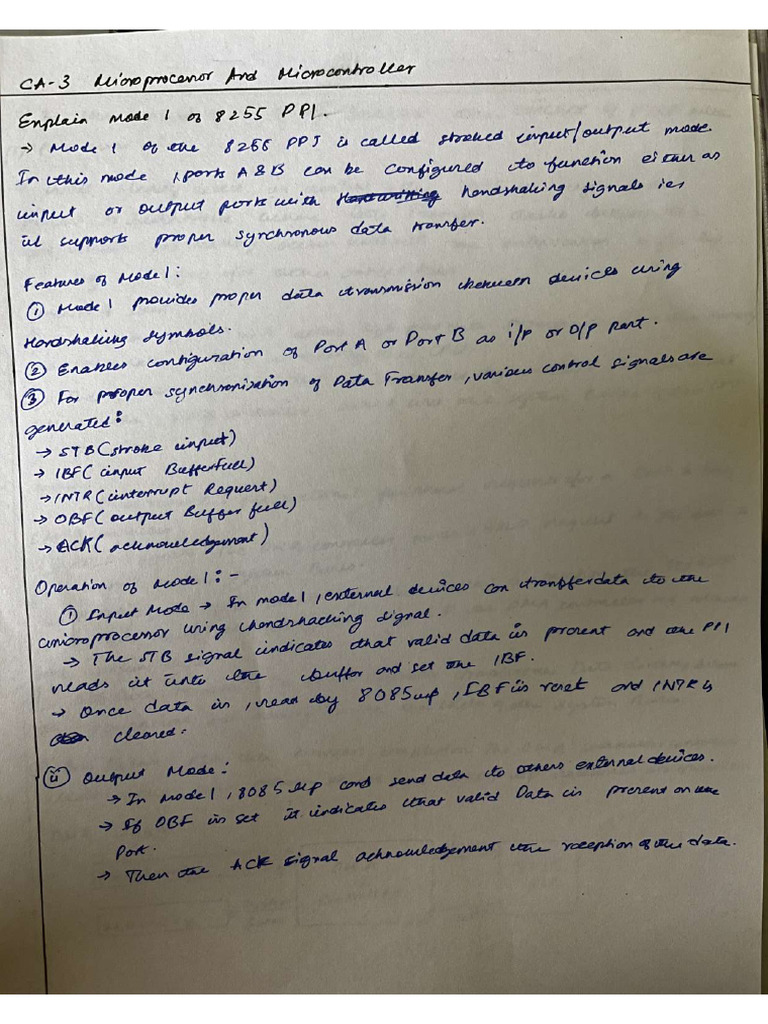 CA-3 Microprocessor And Microcontroller
Explain Mode 1 of 8255 PPI.
→ Mode 1 of the 8255 PPI is called strobed input/output mode.
In this mode, ports A & B can be configured to function either as
input or output ports with handshaking signals ies
it supports proper synchronous data transfer.
Features of Mode 1:
① Mode 1 provides proper data transmission between devices using
Handshaking symbols.
② Enables configuration of Port A or Port B as i/p or O/p port.
③ For proper synchronisation of Data Transfer, various control signals are
generated:
→ STB (stroke input)
→ IBF (input Buffer full)
→ INTR (interrupt Request)
→ OBF (output Buffer full)
→ ACK (acknowledgement)
Operation of Mode 1: -
① Input Mode → In mode 1, external devices can transfer data to the
microprocessor using handshacking signal.
→ The STB signal indicates that valid data is present and the PPI
reads it into the buffer and set the IBF.
→ Once data is, read by 8085 up, IBF is reset and INTR is
cleared.
ⓘⓘ Output Mode:
→ In Mode 1, 8085 up send data to others external devices.
→ If OBF is set it indicates that valid Data is present on the
Port.
→ Then the ACK signal acknowledgement the reception of the data.